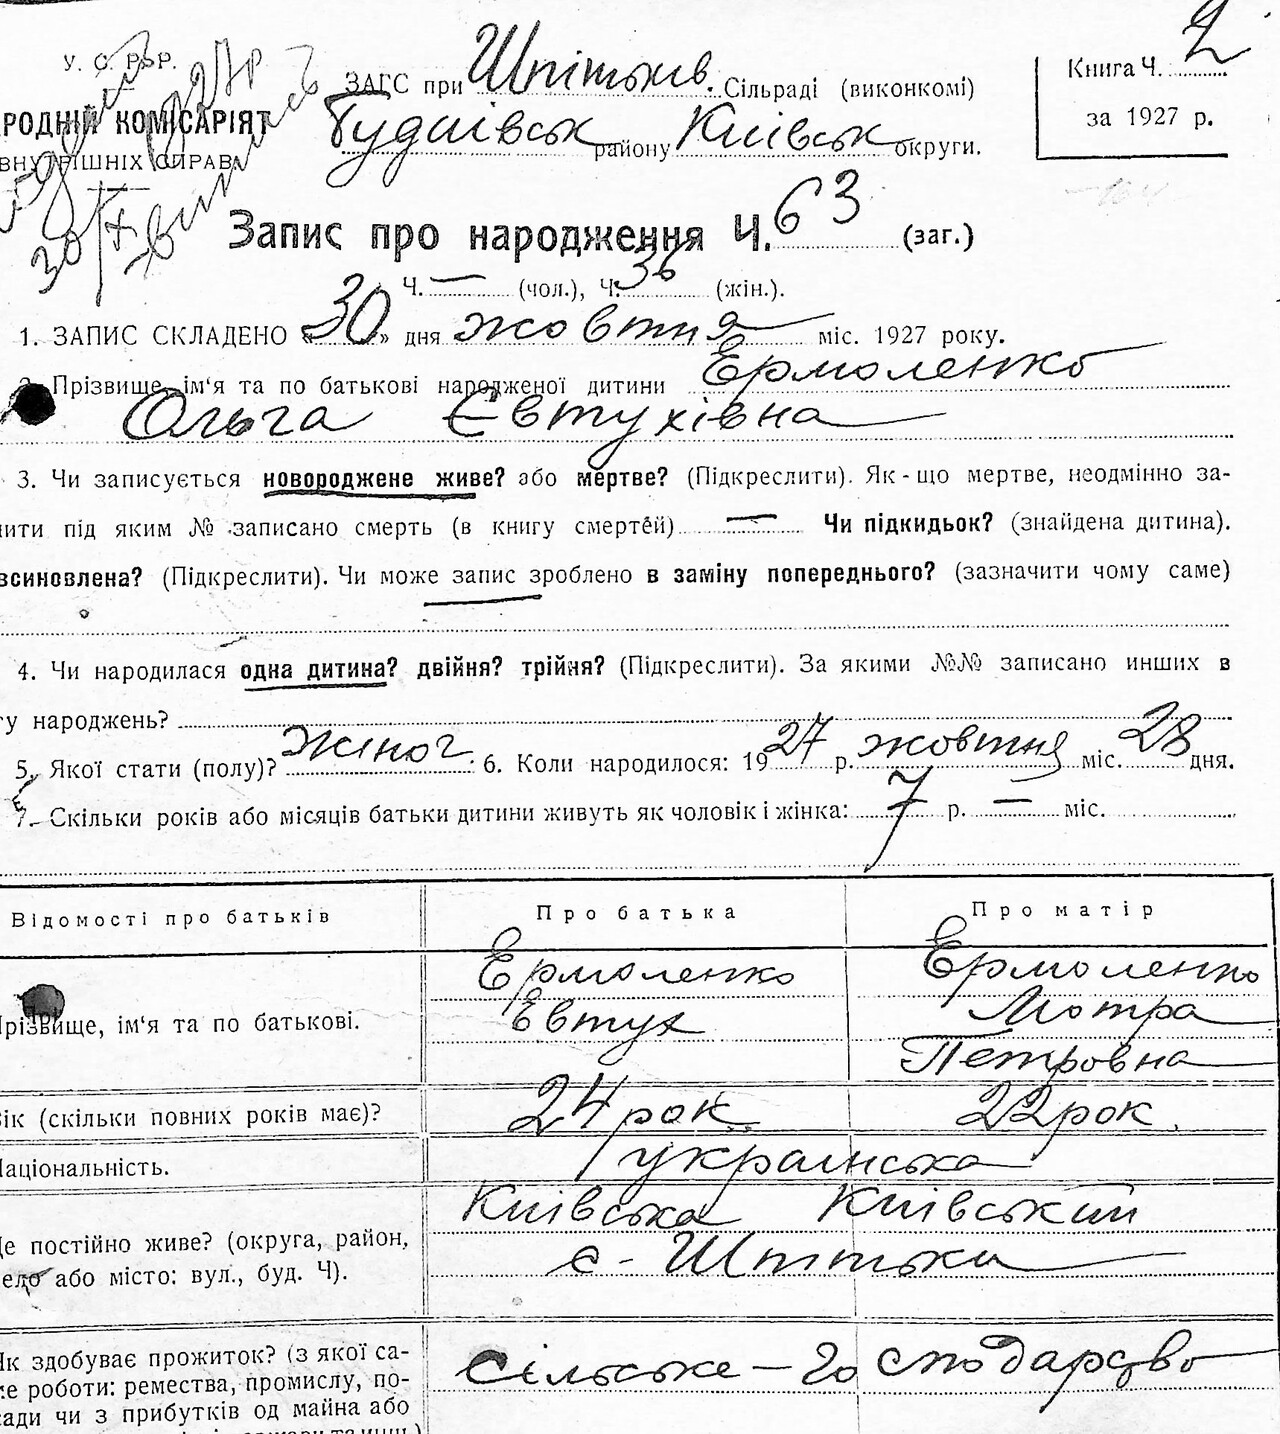 У. С. Р. Р.
ЗАГС при Шпітьків. Сільраді (виконкомі)
Книга Ч. 2
РОДНІЙ КОМІСАРІЯТ
Будаївськ району Київськ округи.
за 1927 р.
ВНУТРІШНІХ СПРАВ
30/X
Запис про народження Ч. 63 (заг.)
Ч. — (чол.), Ч. 36 (жін.).
1. ЗАПИС СКЛАДЕНО «30» дня жовтня міс. 1927 року.
2. Прізвище, ім‘я та по батькові народженої дитини Ермоленко
Ольга Євтухівна
3. Чи записується новороджене живе? або мертве? (Підкреслити). Як-що мертве, неодмінно за-
нити під яким № записано смерть (в книгу смертей) — Чи підкидьок? (знайдена дитина).
всиновлена? (Підкреслити). Чи може запис зроблено в заміну попереднього? (зазначити чому саме)
4. Чи народилася одна дитина? двійня? трійня? (Підкреслити). За якими №№ записано инших в
гу народжень?
5. Якої стати (полу)? жіноч. 6. Коли народилося: 1927 р. жовтня міс. 28 дня.
7. Скільки років або місяців батьки дитини живуть як чоловік і жінка: 7 р. — міс.
Відомості про батьків Про батька Про матір
Ермоленко Ермоленко
Прізвище, ім‘я та по батькові. Евтух Мотра
Петровна
Вік (скільки повних років має)? 24 рок. 22 рок.
Національність. українська
Київська Київський
Де постійно живе? (округа, район,
село або місто: вул., буд. Ч). с. Шпітьки
Як здобуває прожиток? (з якої са- Сільське – господарство
ме роботи: ремества, промислу, по-
сади чи з прибутків од майна або